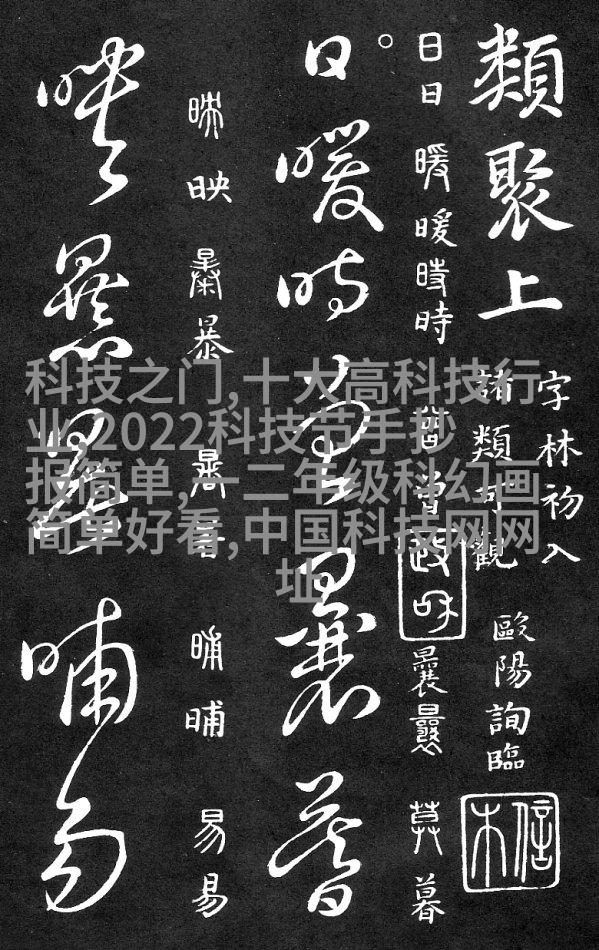 類聚上
字林初入
諸類可觀
歐陽詢臨
日日暖暖時時
政和
莫暮
日暖時
暮
映映
暴暴
晡晡
易易
映
晡易
科技之门,十大高科技行
业,2022科技节手抄
报简单,一二年级科幻画
简单好看,中国科技网网
址